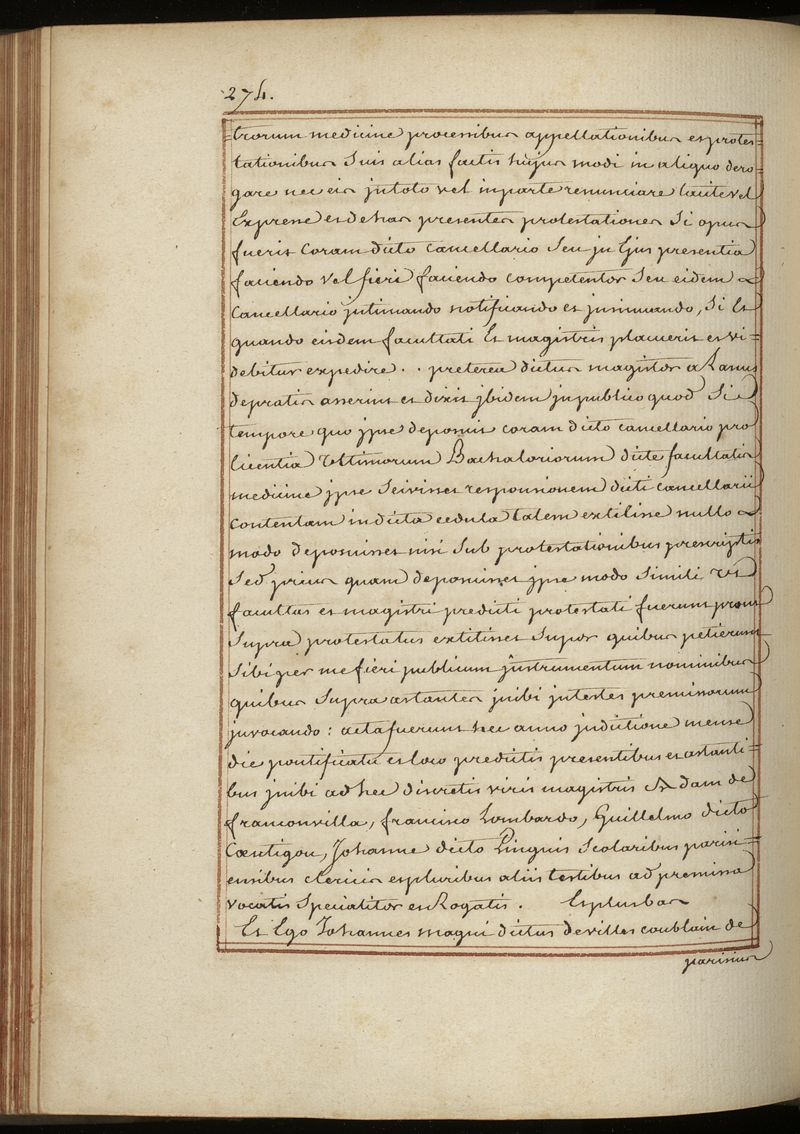 274.
trorum medicine processibus appellationibus et protes=
tationibus Suis alias factis hujus modi in aliquo dero=
gare nec eis jn toto vel in parte renunciare tacite vel
Expresse et de has presentes protestationes Si opus
fuerit Coram dicto cancellario Seu jn Ejus presentia
faciendo vel fieri faciendo competenter Seu eidem
Cancellario jntimando notificando et jnsinuando, Si Et
quando eisdem facultati Et magistris placuerit et vi=
debitur expedire.. preterea dictus magister a Ramis
de pratis asseruit et dixit jbidem jn publico quod Si
tempore quo jpse deposuit coram dicto cancellario pro
licentia Vltimorum Bachaloriorum dicte facultatis
medicine jpse Scivisset responsionem dicti cancellarii
Contentam in dicta cedula talem extitisse nullo
modo deposuisset nisi Sub protestationibus prescriptis
Sed prius quam deposuisset jpse modo Simili Vt
facultas et magistri predicti protestati fuerunt prout
Supra protestatus extitisset Super quibus petierunt
Sibi per me fieri publicum jnstrumentum nominibus
quibus Supra astantes jnibi jn testes premissorum
jnvocando: acta fuerunt hec anno jndictione mense
die pontificatu et loco predictis presentibus et astanti=
bus jnibi ad hec discretis viris magistris Adam de
franconvilla, francisco Lombardo, Guillelmo dicto
Johanne dicto Pinguis Scolaribus parisi=
ensibus clericis et pluribus aliis testibus ad premissa
vocatis Specialiter et Rogatis. Et plus bas
Et Ego Johannes magni dictus de villes coublain de
parisius